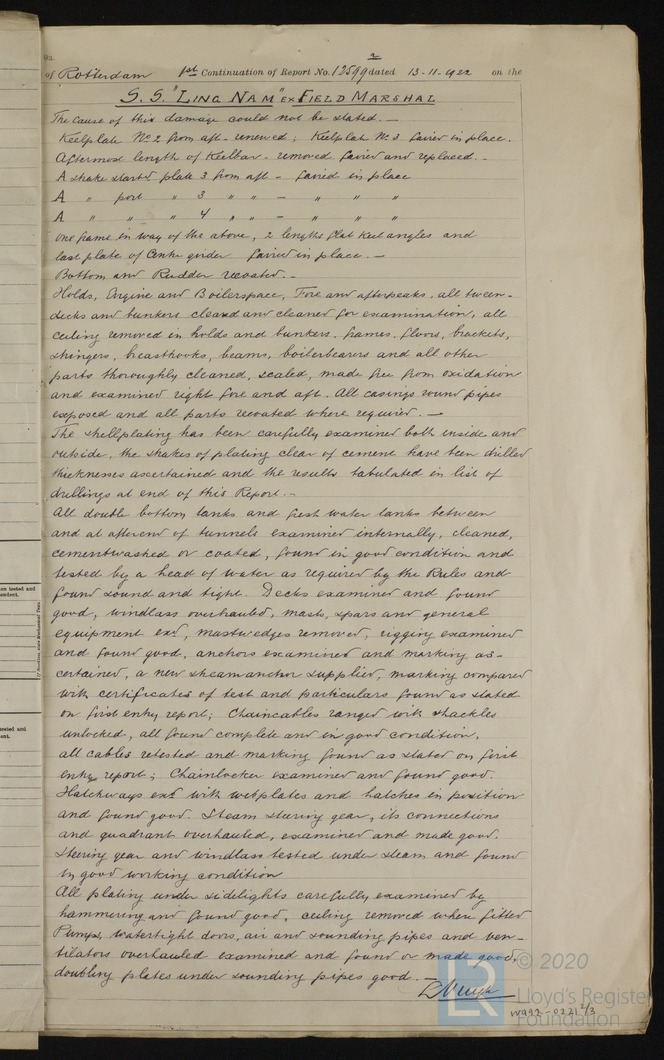 9a.
2
of Rotterdam 1st Continuation of Report No. 12599 dated 13-11-1922 on the
S.S. "LING NAM" ex FIELD MARSHAL
The cause of this damage could not be stated. —
Keelplate No 2 from aft - renewed; Keelplate No 3 faired in place.
Aftermost length of Keelbar - removed faired and replaced. -
A strake starbd plate 3 from aft - faired in place
A " port " 3 " " - " " "
A " " " 4 " " - " " "
one frame in way of the above, 2 lengths flat keel angles and
last plate of Centre girder faired in place. —
Bottom and Rudder recoated. -
Holds, Engine and Boilerspace, Fore and afterpeaks, all tween-
decks and bunkers cleared and cleaned for examination, all
ceiling removed in holds and bunkers, frames, floors, brackets,
stringers, breasthooks, beams, boilerbearers and all other
parts thoroughly cleaned, scaled, made free from oxidation
and examined right fore and aft. All casings round pipes
exposed and all parts recoated where required. —
The shellplating has been carefully examined both inside and
outside, the strakes of plating clear of cement have been drilled
thicknesses ascertained and the results tabulated in list of
drillings at end of this Report. -
All double bottom tanks and fresh water tanks between
and at after end of tunnels examined internally, cleaned,
cementwashed or coated, found in good condition and
tested by a head of water as required by the Rules and
found sound and tight. Decks examined and found
good, windlass overhauled, masts, spars and general
equipment exd, mastwedges removed, rigging examined
and found good, anchors examined and marking as-
certained, a new streamanchor supplied, marking compared
with certificates of test and particulars found as stated
on first entry report; Chaincables ranged with shackles
unlocked, all found complete and in good condition,
all cables retested and marking found as stated on first
entry report; Chainlocker examined and found good.
Hatchways exd with webplates and hatches in position
and found good. Steam steering gear, its connections
and quadrant overhauled, examined and made good.
Steering gear and windlass tested under steam and found
in good working condition
All plating under sidelights carefully examined by
hammering and found good, ceiling removed where fitted
Pumps, watertight doors, air and sounding pipes and ven-
tilators overhauled examined and found or made good,
doubling plates under sounding pipes good. —
LR © 2020
Lloyd's Register
Foundation
W992-0221 2/3